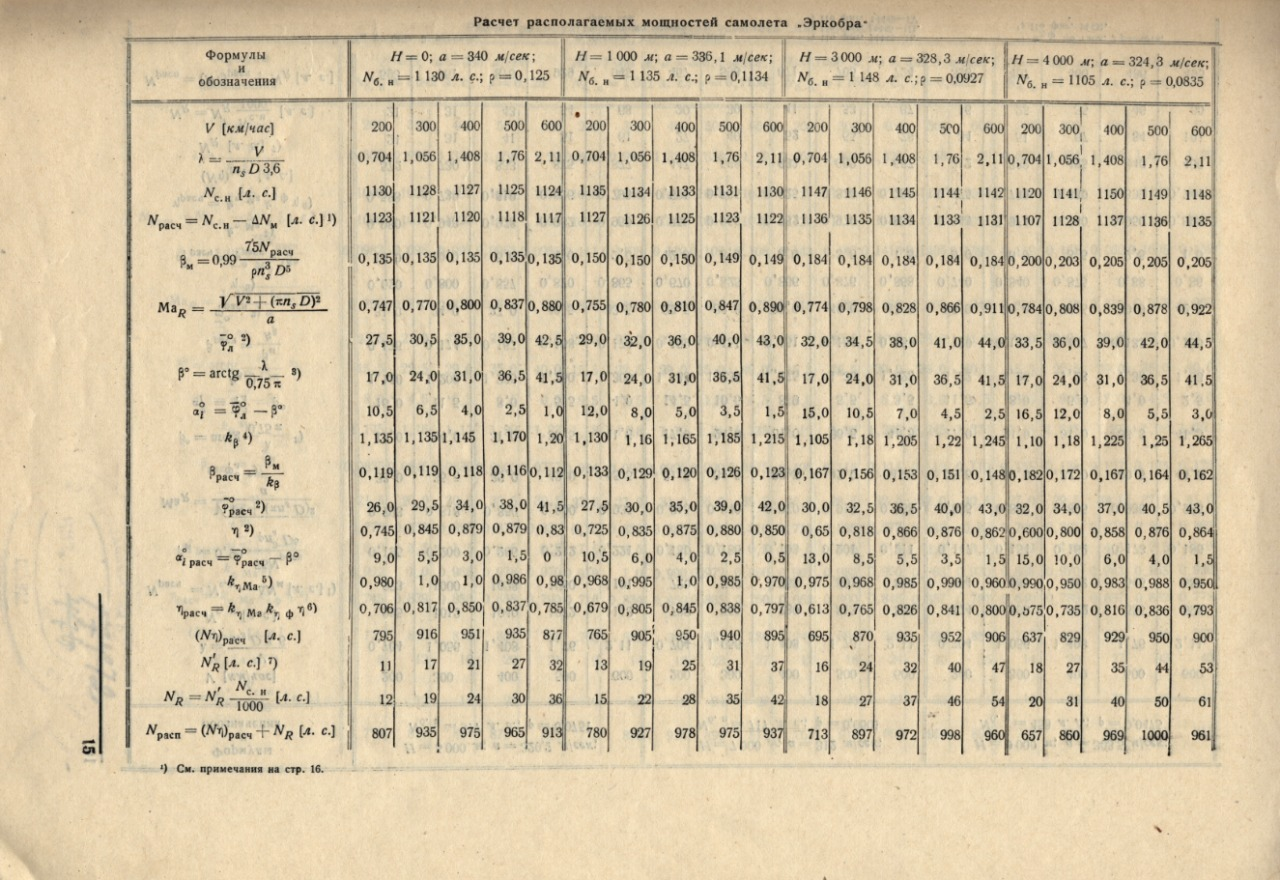 Расчет располагаемых мощностей самолета „Эркобра"
Формулы и обозначения | H = 0; a = 340 м/сек; Nб. н = 1 130 л. с.; ρ = 0,125 | H = 1 000 м; a = 336,1 м/сек; Nб. н = 1 135 л. с.; ρ = 0,1134 | H = 3 000 м; a = 328,3 м/сек; Nб. н = 1 148 л. с.; ρ = 0,0927 | H = 4 000 м; a = 324,3 м/сек; Nб. н = 1105 л. с.; ρ = 0,0835
V [км/час] 200 300 400 500 600 200 300 400 500 600 200 300 400 500 600 200 300 400 500 600
λ = V / nsD 3,6 0,704 1,056 1,408 1,76 2,11 0,704 1,056 1,408 1,76 2,11 0,704 1,056 1,408 1,76 2,11 0,704 1,056 1,408 1,76 2,11
Nс.н [л. с.] 1130 1128 1127 1125 1124 1135 1134 1133 1131 1130 1147 1146 1145 1144 1142 1120 1141 1150 1149 1148
Nрасч = Nс.н — ΔNм [л. с.] ¹) 1123 1121 1120 1118 1117 1127 1126 1125 1123 1122 1136 1135 1134 1133 1131 1107 1128 1137 1136 1135
βм = 0,99 75Nрасч / ρns³ D⁵ 0,135 0,135 0,135 0,135 0,135 0,150 0,150 0,150 0,149 0,149 0,184 0,184 0,184 0,184 0,184 0,200 0,203 0,205 0,205 0,205
MaR = √V² + (πnsD)² / a 0,747 0,770 0,800 0,837 0,880 0,755 0,780 0,810 0,847 0,890 0,774 0,798 0,828 0,866 0,911 0,784 0,808 0,839 0,878 0,922
φ̄°л ²) 27,5 30,5 35,0 39,0 42,5 29,0 32,0 36,0 40,0 43,0 32,0 34,5 38,0 41,0 44,0 33,5 36,0 39,0 42,0 44,5
β° = arctg λ / 0,75 π ³) 17,0 24,0 31,0 36,5 41,5 17,0 24,0 31,0 36,5 41,5 17,0 24,0 31,0 36,5 41,5 17,0 24,0 31,0 36,5 41,5
α°i = φ̄°л — β° 10,5 6,5 4,0 2,5 1,0 12,0 8,0 5,0 3,5 1,5 15,0 10,5 7,0 4,5 2,5 16,5 12,0 8,0 5,5 3,0
kβ ⁴) 1,135 1,135 1,145 1,170 1,20 1,130 1,16 1,165 1,185 1,215 1,105 1,18 1,205 1,22 1,245 1,10 1,18 1,225 1,25 1,265
βрасч = βм / kβ 0,119 0,119 0,118 0,116 0,112 0,133 0,129 0,120 0,126 0,123 0,167 0,156 0,153 0,151 0,148 0,182 0,172 0,167 0,164 0,162
φ̄°расч ²) 26,0 29,5 34,0 38,0 41,5 27,5 30,0 35,0 39,0 42,0 30,0 32,5 36,5 40,0 43,0 32,0 34,0 37,0 40,5 43,0
η ²) 0,745 0,845 0,879 0,879 0,83 0,725 0,835 0,875 0,880 0,850 0,65 0,818 0,866 0,876 0,862 0,600 0,800 0,858 0,876 0,864
α°i расч = φ̄°расч — β° 9,0 5,5 3,0 1,5 0 10,5 6,0 4,0 2,5 0,5 13,0 8,5 5,5 3,5 1,5 15,0 10,0 6,0 4,0 1,5
kη Ma ⁵) 0,980 1,0 1,0 0,986 0,98 0,968 0,995 1,0 0,985 0,970 0,975 0,968 0,985 0,990 0,960 0,990 0,950 0,983 0,988 0,950
ηрасч = kη Ma kη ф η ⁶) 0,706 0,817 0,850 0,837 0,785 0,679 0,805 0,845 0,838 0,797 0,613 0,765 0,826 0,841 0,800 0,575 0,735 0,816 0,836 0,793
(Nη)расч [л. с.] 795 916 951 935 877 765 905 950 940 895 695 870 935 952 906 637 829 929 950 900
N′R [л. с.] ⁷) 11 17 21 27 32 13 19 25 31 37 16 24 32 40 47 18 27 35 44 53
NR = N′R Nс. н / 1000 [л. с.] 12 19 24 30 36 15 22 28 35 42 18 27 37 46 54 20 31 40 50 61
Nрасп = (Nη)расч + NR [л. с.] 807 935 975 965 913 780 927 978 975 937 713 897 972 998 960 657 860 969 1000 961
¹) См. примечания на стр. 16.
15